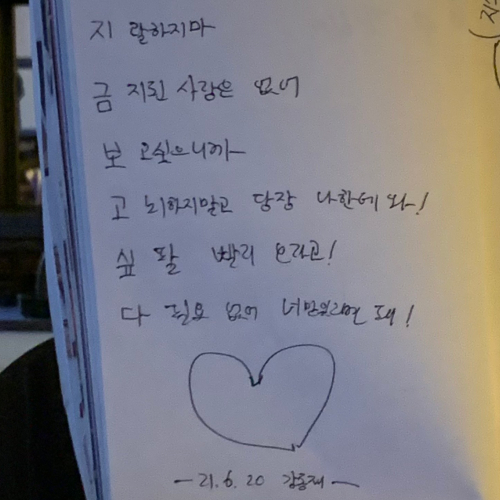 지 랄하지마
금 지된 사랑은 없어
보 고싶으니까
고 뇌하지말고 당장 나한테 와!
싶 팔 빨리 오라고!
다 필요 없어 너만있으면 돼!
-21.6.20